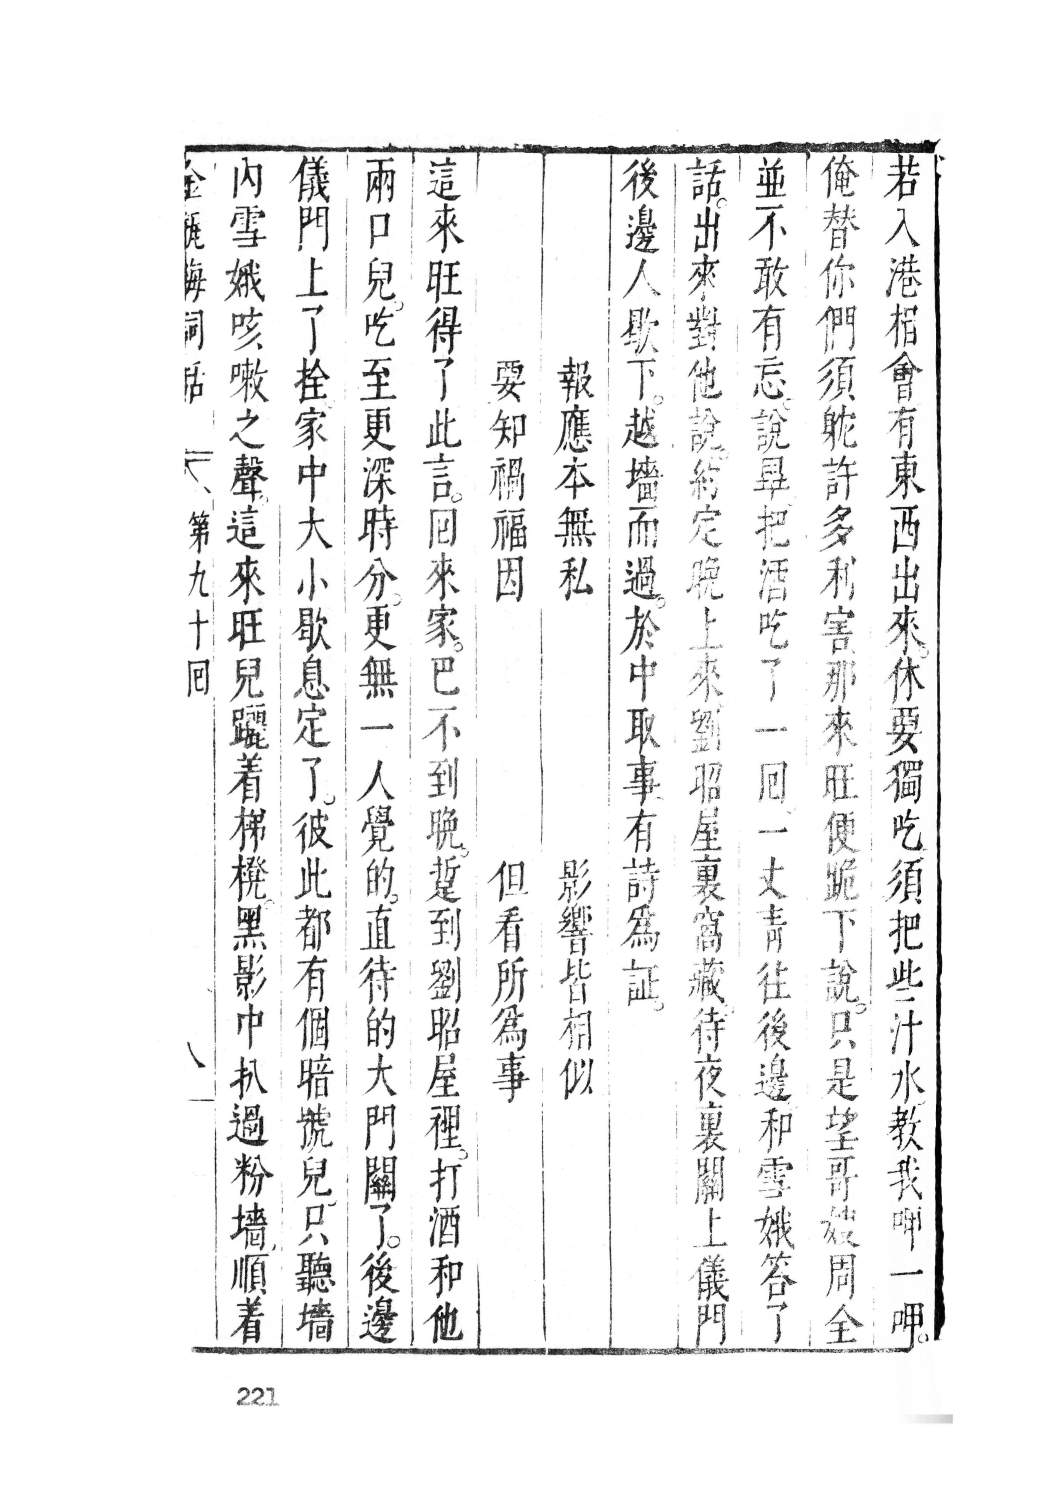 若入港相會有東西出來。休要獨吃須把些汁水教我呷一呷。
俺替你們須躭許多利害那來旺便跪下說。只是望哥嫂周全
並不敢有忘。說畢把酒吃了一囘一丈青往後邊和雪娥答了
話。出來對他說。約定晚上來劉昭屋裏窩藏待夜裏關上儀門
後邊人歇下。越墻而過。於中取事有詩為証。
報應本無私　影響皆相似
要知禍福因　但看所為事
這來旺得了此言。囘來家。巴不到晚。踅到劉昭屋裡。打酒和他
兩口兒。吃至更深時分。更無一人覺的。直待的大門關了。後邊
儀門上了拴。家中大小歇息定了。彼此都有個暗號兒只聽墻
內雪娥咳嗽之聲。這來旺兒躧着梯櫈。黑影中扒過粉墻順着
金瓶梅詞話　第九十囘　八
221